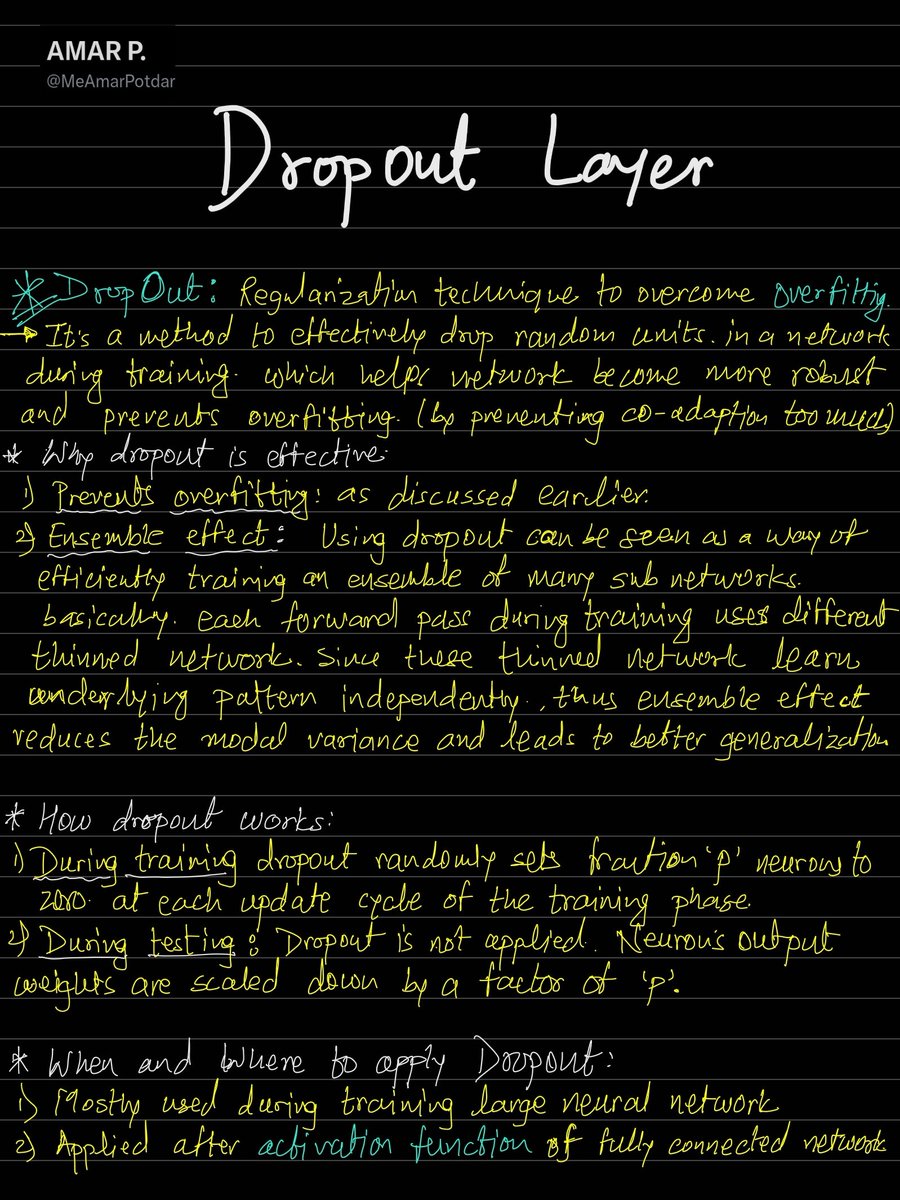 AMAR P.
@MeAmarPotdar
Dropout Layer
* DropOut: Regularization technique to overcome overfittig.
→ It's a method to effectively drop random units. in a network
during training. which helps network become more robust
and prevents overfitting. (by preventing co-adaption too much)
* Why dropout is effective:
1) Prevents overfittig: as discussed earlier.
2) Ensemble effect: Using dropout can be seen as a way of
efficiently training an ensemble of many sub networks.
basically. each forward pass during training uses different
thinned network. since these thinned network learn
underlying pattern independently, thus ensemble effect
reduces the modal variance and leads to better generalization
* How dropout works:
1) During training dropout randomly sets fraction 'p' neurons to
zero. at each update cycle of the training phase.
2) During testing: Dropout is not applied. Neuron's output
weights are scaled down by a factor of 'p'.
* When and Where to apply Dropout:
1) Mostly used during training large neural network
2) Applied after activation function of fully connected network